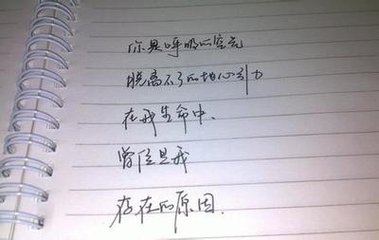 你是呼吸的空气
脱离不了的地心引力
在我生命中.
曾经是我
存在的原因.